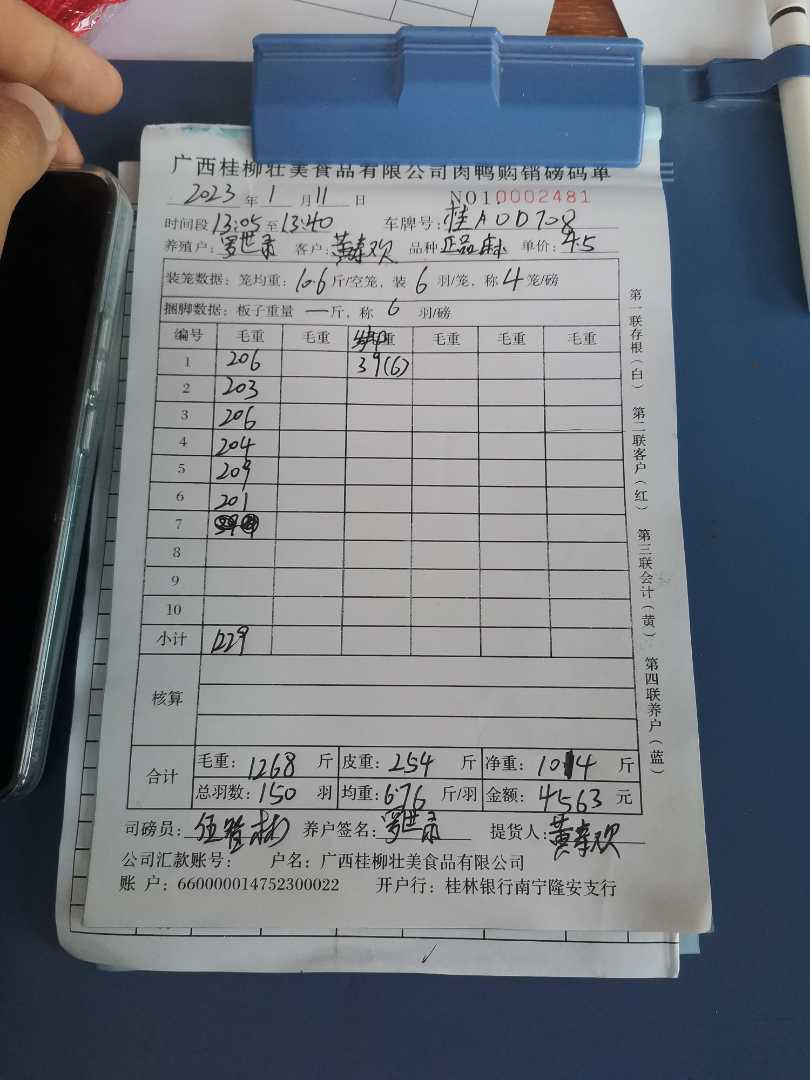 广西桂柳壮美食品有限公司肉鸭购销磅码单
2023 年 1 月 11 日 NO1.0002481
时间段 13:05 至 13:40 车牌号: 桂A0D708
养殖户: 罗世 客户: 黄春欢 品种 正品麻 单价: 4.5
装笼数据: 笼均重: 10.6 斤/空笼, 装 6 羽/笼, 称 4 笼/磅
捆脚数据: 板子重量 一 斤, 称 6 羽/磅
编号 毛重 毛重 重 毛重 毛重 毛重
1 206 39(6)
2 203
3 206
4 204
5 209
6 201
7
8
9
10
小计 1229
核算
合计 毛重: 1268 斤 皮重: 254 斤 净重: 1014 斤
总羽数: 150 羽 均重: 6.76 斤/羽 金额: 4563 元
司磅员: 养户签名: 罗世 提货人: 黄春欢
公司汇款账号: 户名: 广西桂柳壮美食品有限公司
账 户: 660000014752300022 开户行: 桂林银行南宁隆安支行
第一联存根(白) 第二联客户(红) 第三联会计(黄) 第四联养户(蓝)